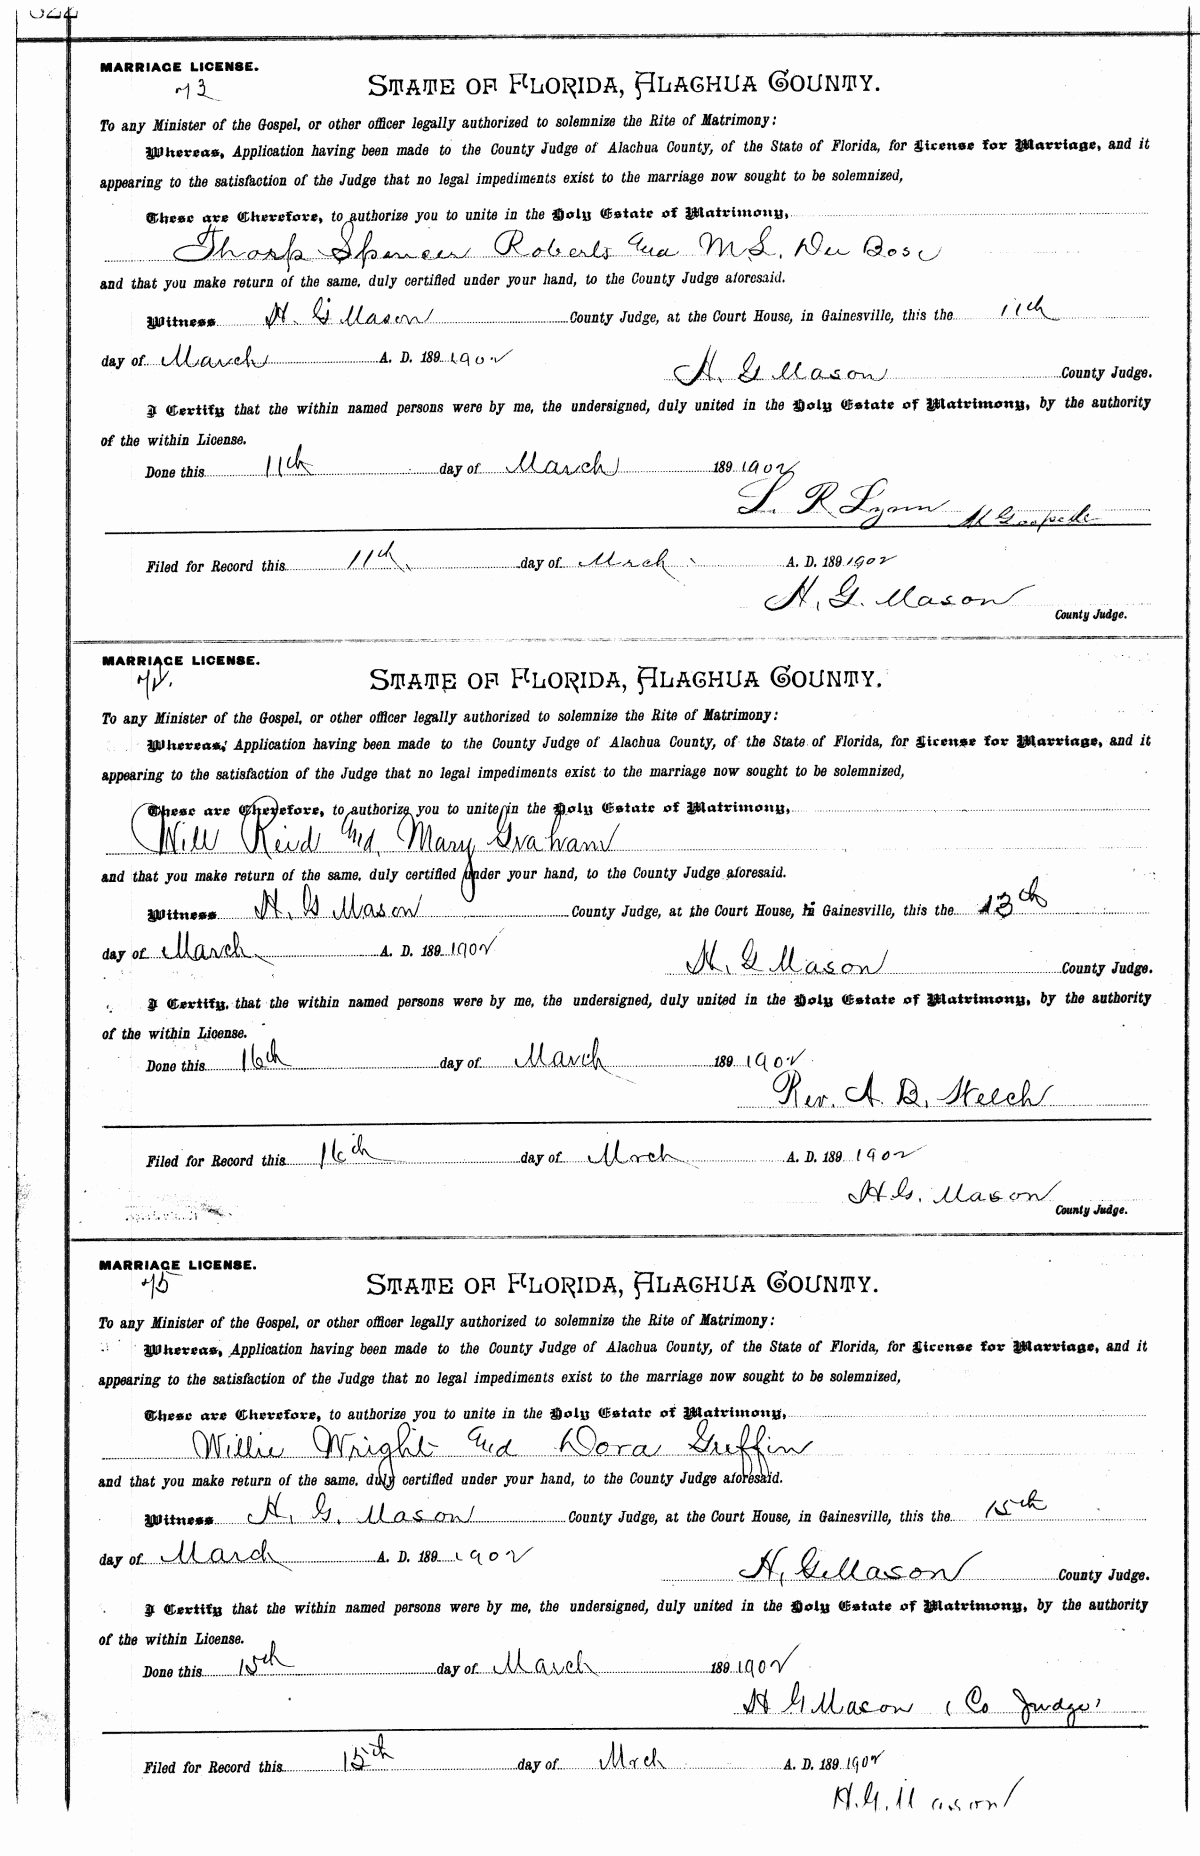 MARRIAGE LICENSE.
73
STATE OF FLORIDA, ALACHUA COUNTY.
To any Minister of the Gospel, or other officer legally authorized to solemnize the Rite of Matrimony:
Whereas, Application having been made to the County Judge of Alachua County, of the State of Florida, for License for Marriage, and it
appearing to the satisfaction of the Judge that no legal impediments exist to the marriage now sought to be solemnized,
These are Therefore, to authorize you to unite in the Holy Estate of Matrimony,
Tharp Spencer Roberts and M. L. Du Bose
and that you make return of the same, duly certified under your hand, to the County Judge aforesaid.
Witness H. G Mason County Judge, at the Court House, in Gainesville, this the 11th
day of March A. D. 189 1902
H. G Mason County Judge.
I Certify that the within named persons were by me, the undersigned, duly united in the Holy Estate of Matrimony, by the authority
of the within License.
Done this 11th day of March 189 1902
L. R Lynn
Filed for Record this 11th day of Mrch A. D. 189 1902
H. G. Mason
County Judge.
MARRIAGE LICENSE.
74.
STATE OF FLORIDA, ALACHUA COUNTY.
To any Minister of the Gospel, or other officer legally authorized to solemnize the Rite of Matrimony:
Whereas, Application having been made to the County Judge of Alachua County, of the State of Florida, for License for Marriage, and it
appearing to the satisfaction of the Judge that no legal impediments exist to the marriage now sought to be solemnized,
These are Therefore, to authorize you to unite in the Holy Estate of Matrimony,
Will Reid and Mary Graham
and that you make return of the same, duly certified under your hand, to the County Judge aforesaid.
Witness H. G Mason County Judge, at the Court House, in Gainesville, this the 13th
day of March A. D. 189 1902
H. G Mason County Judge.
I Certify, that the within named persons were by me, the undersigned, duly united in the Holy Estate of Matrimony, by the authority
of the within License.
Done this 16th day of March 189 1902
Rev. A. B. Welch
Filed for Record this 16th day of Mrch A. D. 189 1902
H G. Mason
County Judge.
MARRIAGE LICENSE.
75
STATE OF FLORIDA, ALACHUA COUNTY.
To any Minister of the Gospel, or other officer legally authorized to solemnize the Rite of Matrimony:
Whereas, Application having been made to the County Judge of Alachua County, of the State of Florida, for License for Marriage, and it
appearing to the satisfaction of the Judge that no legal impediments exist to the marriage now sought to be solemnized,
These are Therefore, to authorize you to unite in the Holy Estate of Matrimony,
Willie Wright and Dora Griffin
and that you make return of the same, duly certified under your hand, to the County Judge aforesaid.
Witness H. G. Mason County Judge, at the Court House, in Gainesville, this the 15th
day of March A. D. 189 1902
H. G Mason County Judge.
I Certify that the within named persons were by me, the undersigned, duly united in the Holy Estate of Matrimony, by the authority
of the within License.
Done this 15th day of March 189 1902
H G Mason (Co Judge)
Filed for Record this 15th day of Mrch A. D. 189 1902
H. G. Mason